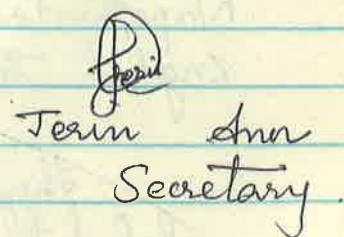 Jerin
Jerin Ann
Secretary.